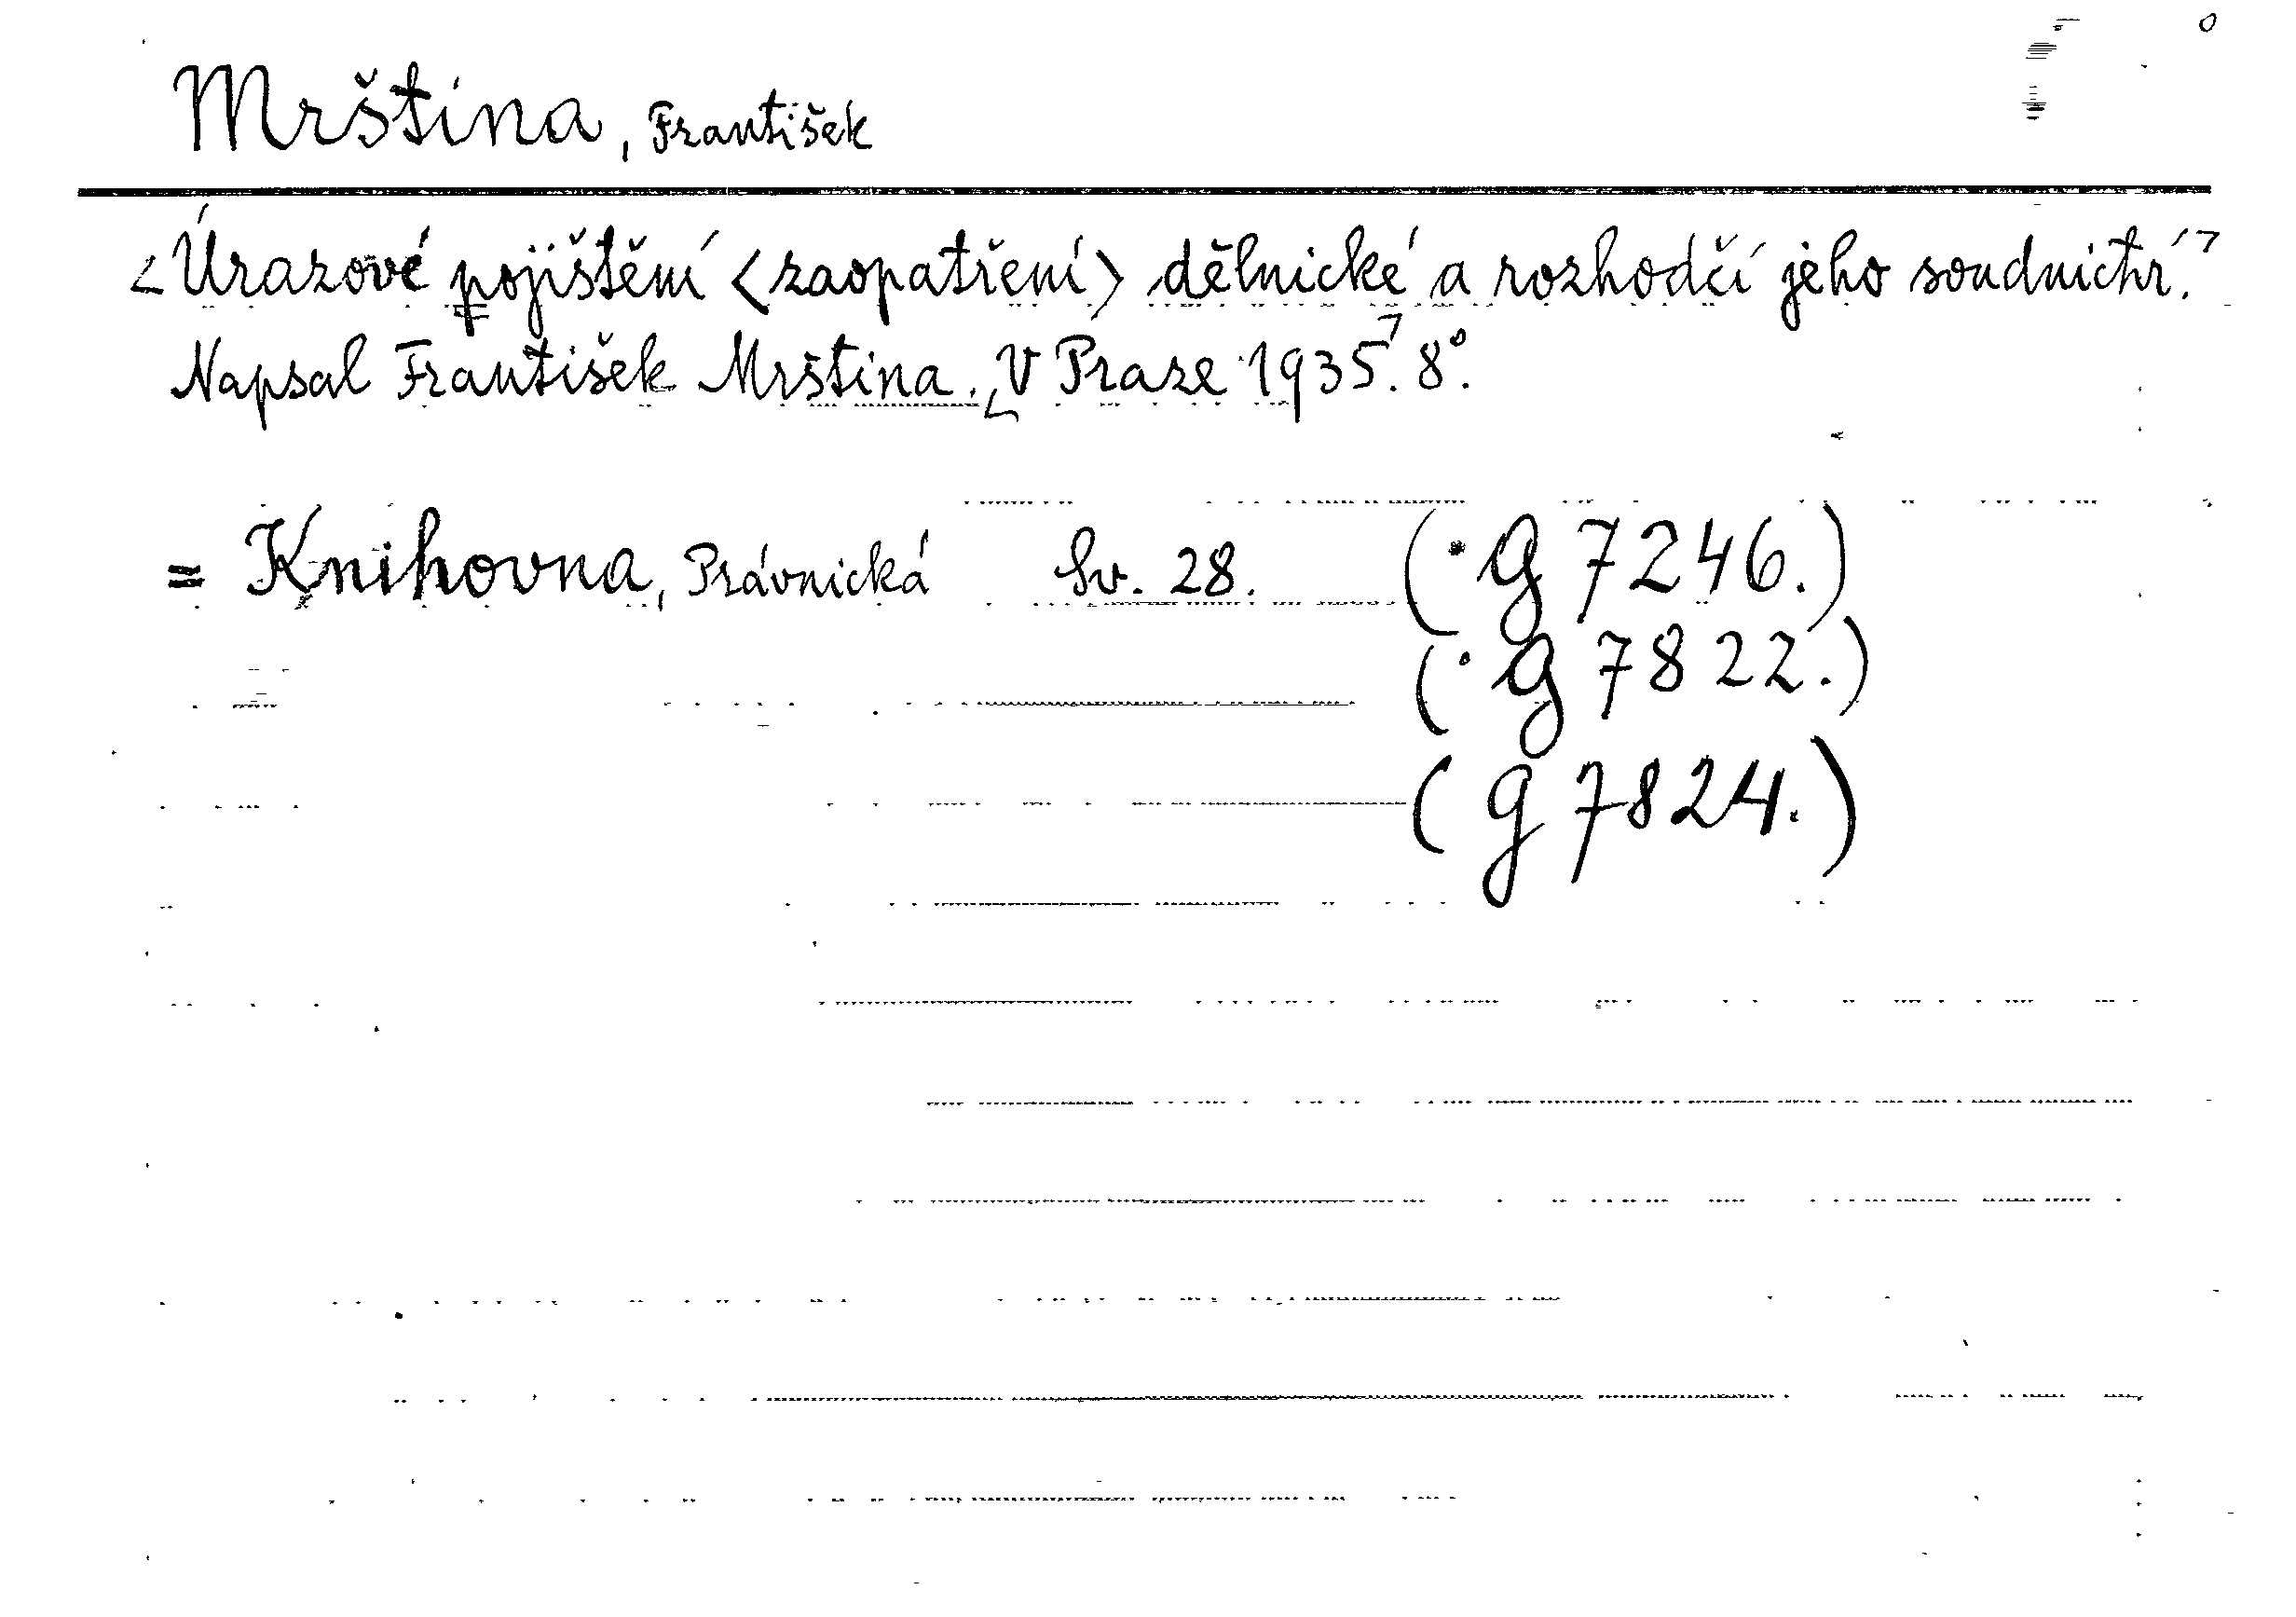 Mrština, František
<Úrazové pojištění <zaopatření> dělnické a rozhodčí jeho soudnictví.>
Napsal František Mrština. <V Praze 1935.> 8°.
= Knihovna, Právnická Sv. 28. (· g 7246.)
(· g 7822.)
(g 7824.)